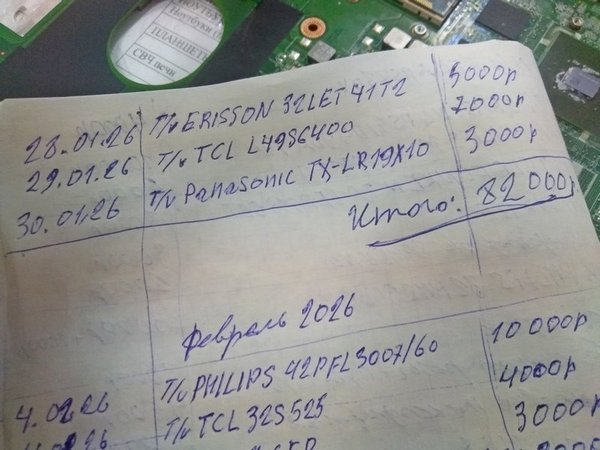 Ноутбуки
ПЛАНШЕТ
СВЧ печи
28.01.26 Т/в ERISSON 32LET41T2 3000р
29.01.26 Т/в TCL L49S6400 7000р
30.01.26 Т/в Panasonic TX-LR19X10 3000р
Итого: 82000р
февраль 2026
4.02.26 Т/в PHILIPS 42PFL3007/60 10000р
Т/в TCL 32S525 4000р
3000р